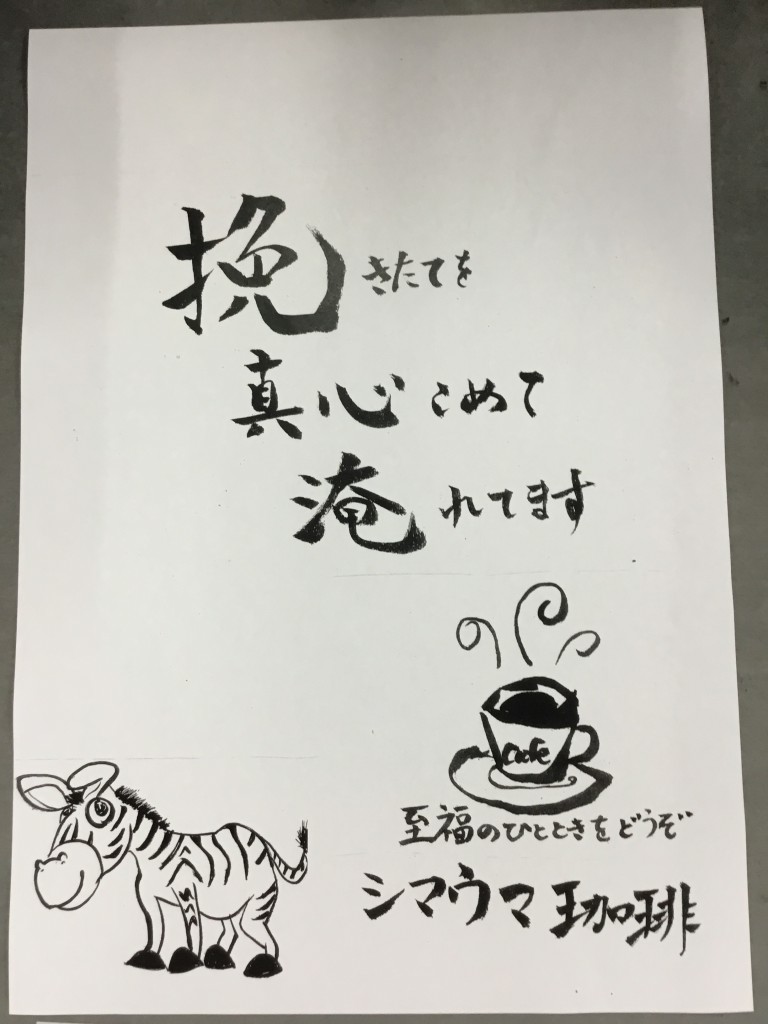 挽きたてを
真心こめて
淹れてます
Cafe
至福のひとときをどうぞ
シマウマ珈琲